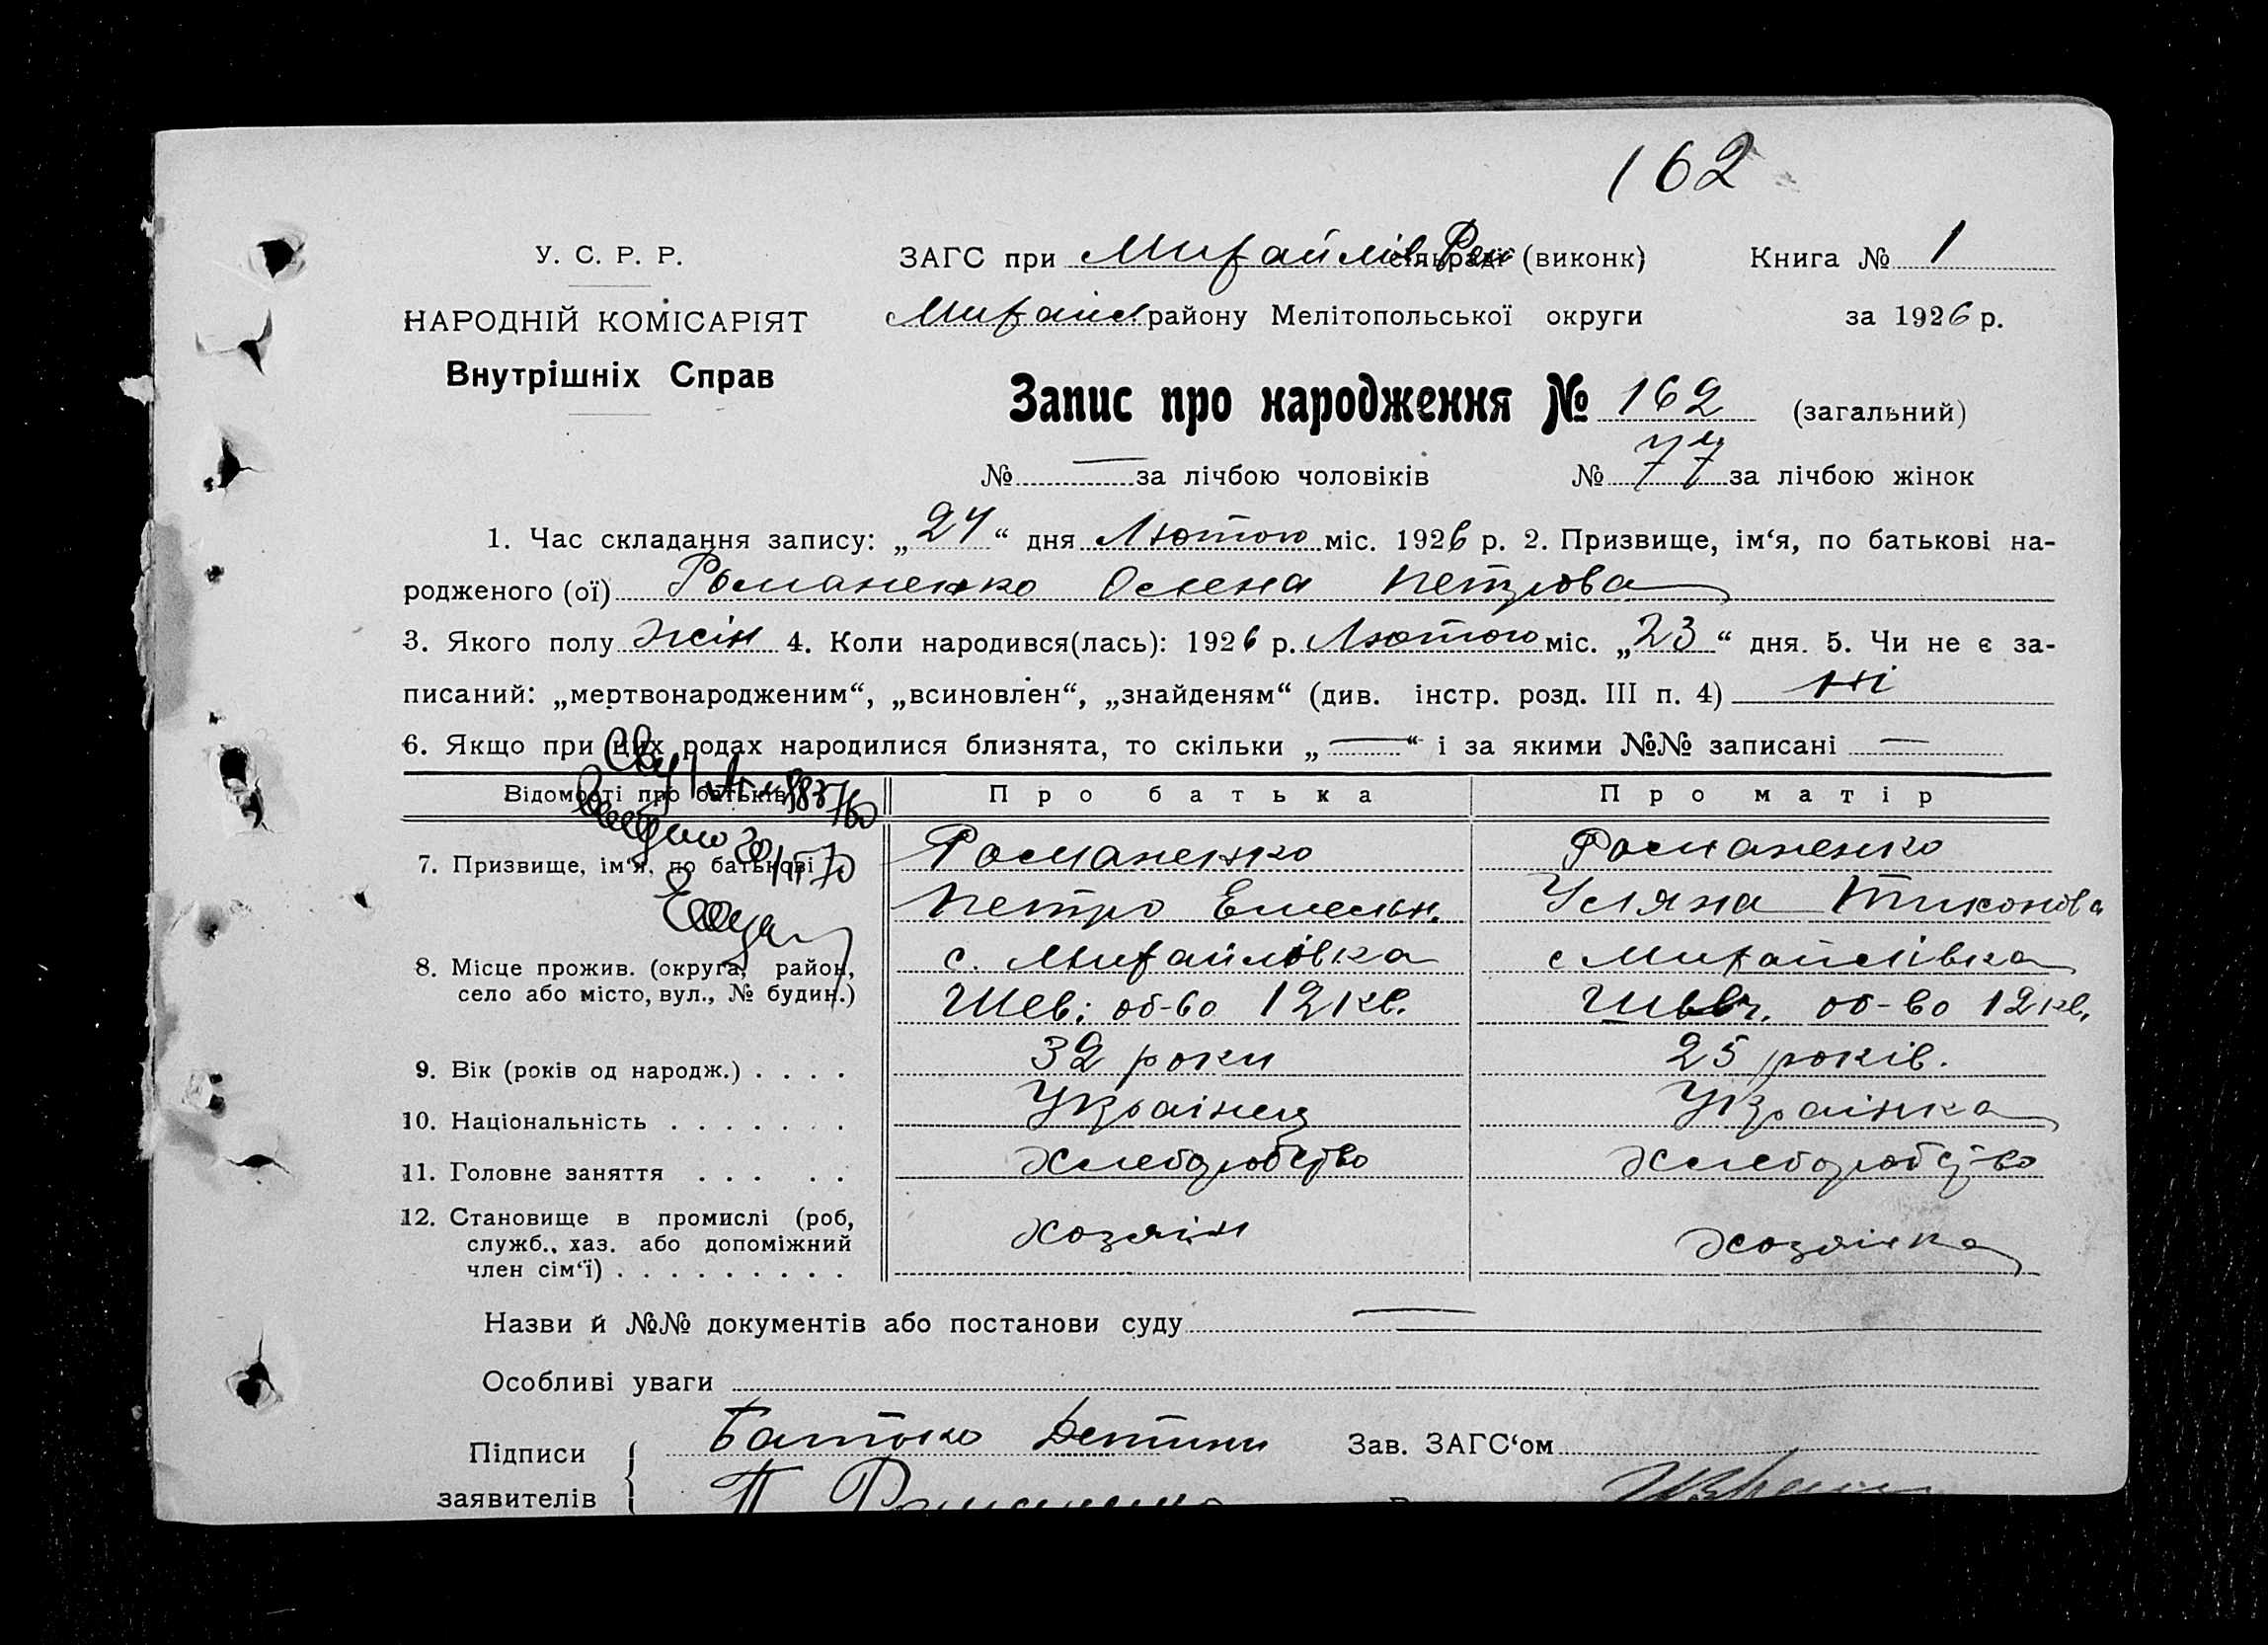 162
У. С. Р. Р.
ЗАГС при Михайлів. Рай (виконк) Книга № 1
НАРОДНІЙ КОМІСАРІЯТ
Михайл. району Мелітопольської округи за 1926 р.
Внутрішніх Справ
Запис про народження № 162 (загальний)
№ — за лічбою чоловіків № 77 за лічбою жінок
1. Час складання запису: „24“ дня Лютого міс. 1926 р. 2. Призвище, ім‘я, по батькові на-
родженого (ої) Романенко Олена Петрова
3. Якого полу жін 4. Коли народився(лась): 1926 р. Лютого міс. „23“ дня. 5. Чи не є за-
писаний: „мертвонародженим“, „всиновлен“, „знайденям“ (див. інстр. розд. III п. 4) ні
6. Якщо при цих родах народилися близнята, то скільки „—“ і за якими №№ записані —
Відомості про батьків Про батька Про матір
7. Призвище, ім‘я, по батькові Романенко Романенко
Петро Емельян. Уляна Тихонова
8. Місце прожив. (округа, район, с. Михайлівка с Михайлівка
село або місто, вул., № будин.) Шев: об-во 12 кв. Шевч. об-во 12 кв.
9. Вік (років од народж.) . . . . 32 роки 25 років.
10. Національність . . . . . . . Українец Українка
11. Головне заняття . . . . . Хлеборобство Хлеборобство
12. Становище в промислі (роб, хозяін хозяінка
служб., хаз. або допоміжний
член сім‘ї) . . . . . . . . .
Назви й №№ документів або постанови суду —
Особливі уваги
Підписи Батько Детини Зав. ЗАГС‘ом
заявителів П Романенко